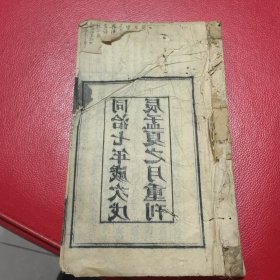 同治七年歲次戊
辰孟夏之月重刊